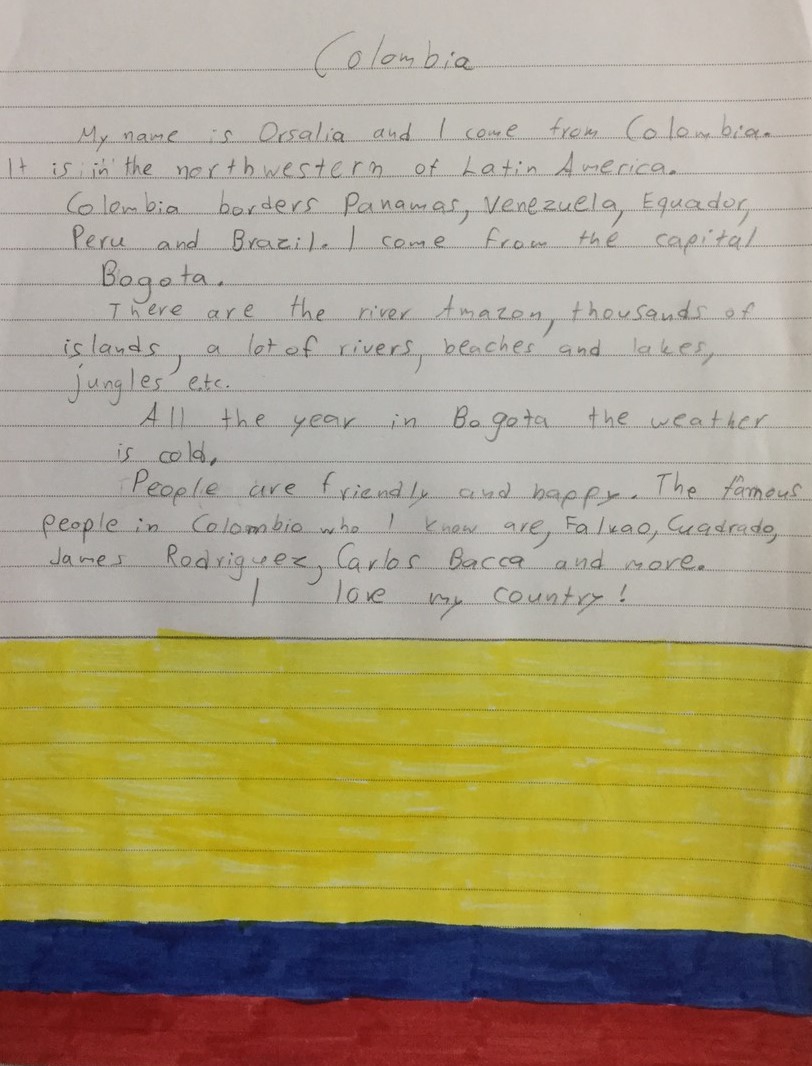 Colombia
My name is Orsalia and I come from Colombia.
It is in the northwestern of Latin America.
Colombia borders Panamas, Venezuela, Equador,
Peru and Brazil. I come from the capital
Bogota.
There are the river Amazon, thousands of
islands, a lot of rivers, beaches and lakes,
jungles etc.
All the year in Bogota the weather
is cold.
People are friendly and happy. The famous
people in Colombia who I know are, Falkao, Cuadrado,
James Rodriguez, Carlos Bacca and more.
I love my country!